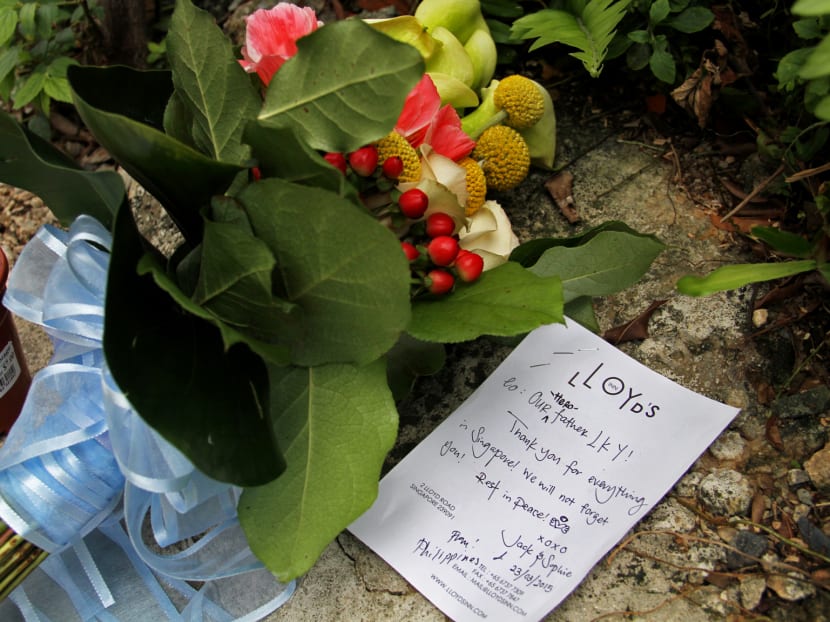 LLOYD'S
INN
To: OUR Hero father LKY!
Thank you for everything
in Singapore! We will not forget
you!
Rest in peace!
xoxo
Jack & Sophie
23/03/2015
From:
Philippines
2 LLOYD ROAD
SINGAPORE 239091
TEL: +65 6737 7309
FAX: +65 6737 7847
EMAIL: MAIL@LLOYDSINN.COM
WWW.LLOYDSINN.COM